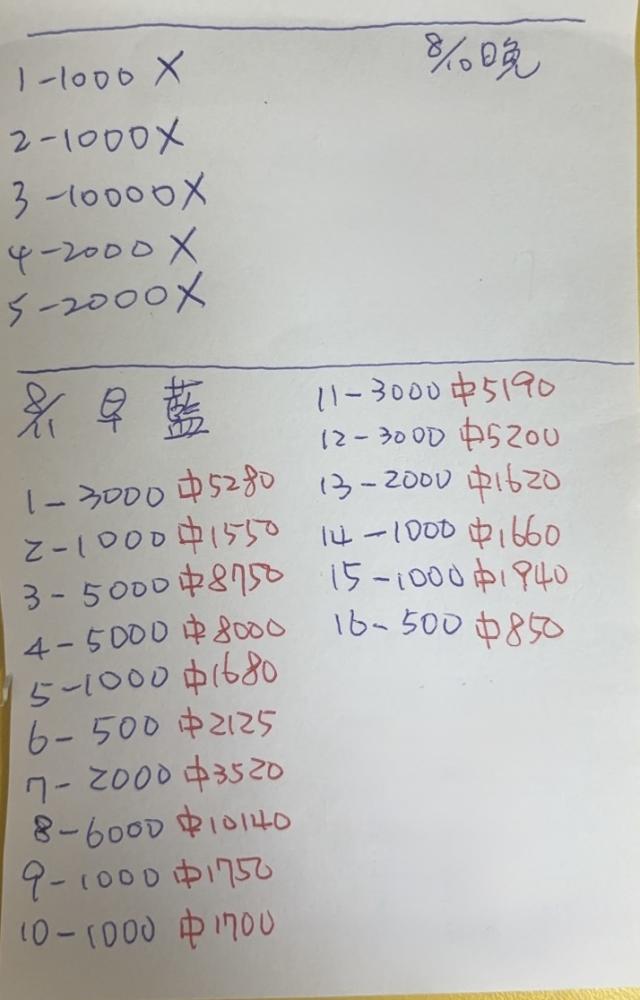 8/10晚
1-1000 X
2-1000X
3-10000X
4-2000 X
5-2000X
8/11 早 藍
1-3000 中5280
2-1000 中1550
3-5000 中8750
4-5000 中8000
5-1000 中1680
6-500 中2125
7-2000 中3520
8-6000 中10140
9-1000 中1750
10-1000 中1700
11-3000 中5190
12-3000 中5200
13-2000 中1620
14-1000 中1660
15-1000 中1940
16-500 中850